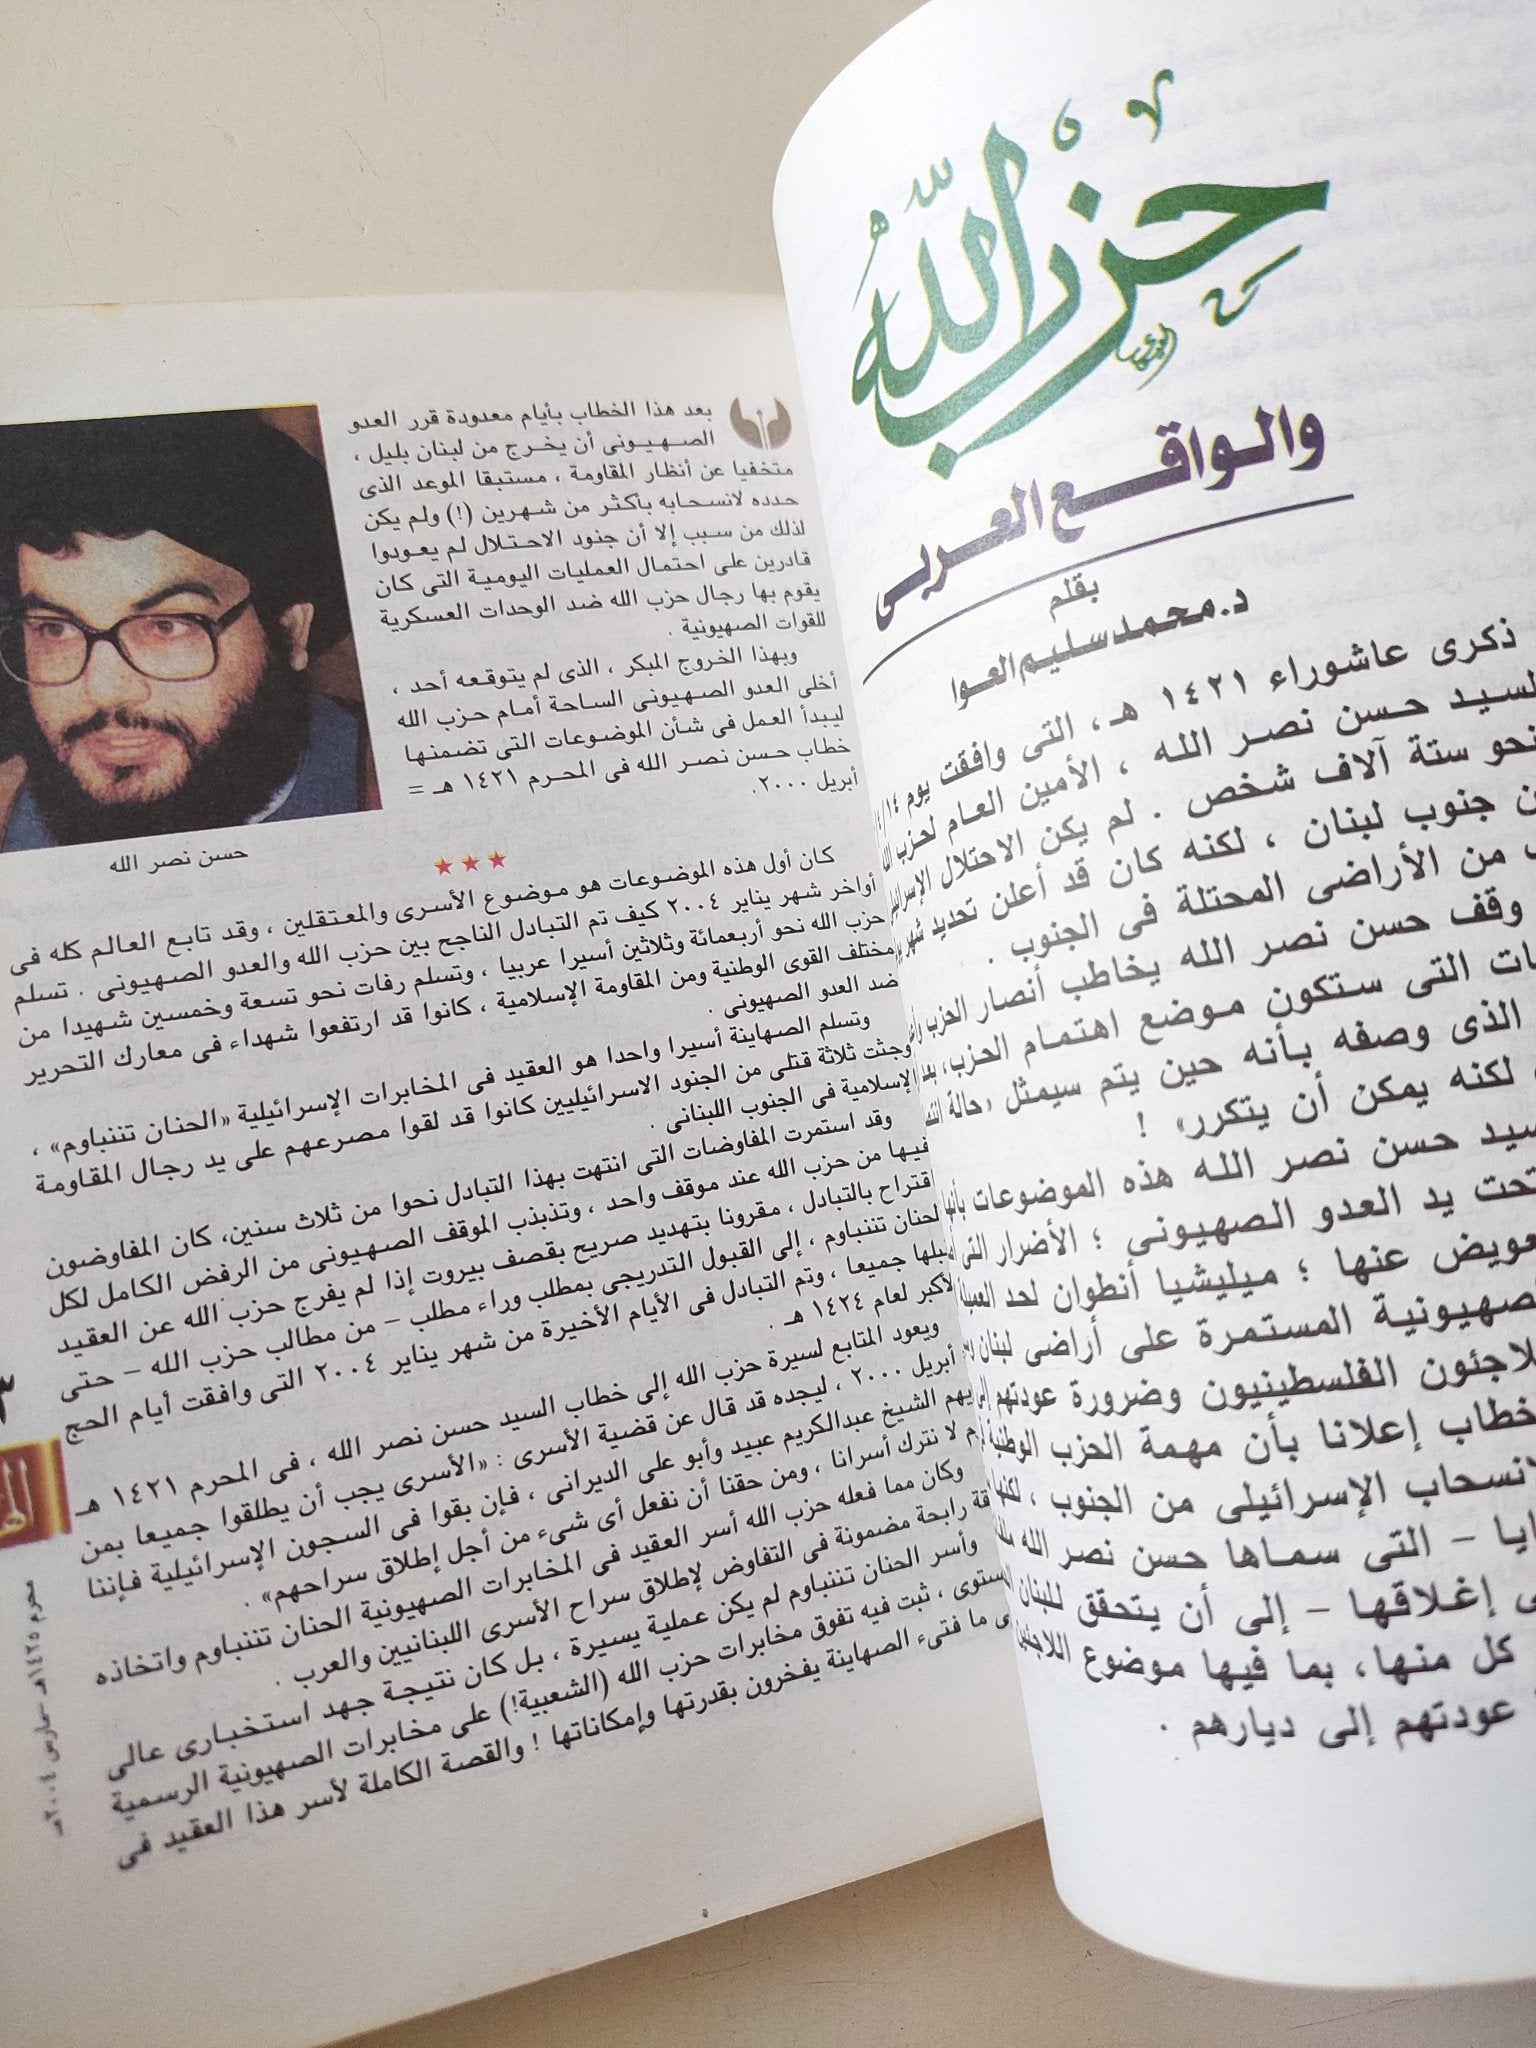 حزب الله
والواقع العربى
بقلم
د. محمد سليم العوا
ذكرى عاشوراء ١٤٢١ هـ ، التى وافقت يوم
السيد حسن نصر الله ، الأمين العام لحزب
نحو ستة آلاف شخص . لم يكن الاحتلال
جنوب لبنان ، لكنه كان قد أعلن تحديد شهر
من الأراضى المحتلة فى الجنوب .
وقف حسن نصر الله يخاطب أنصار الحزب
التى ستكون موضع اهتمام الحزب، بعد
الذى وصفه بأنه حين يتم سيمثل «حالة
لكنه يمكن أن يتكرر» !
حسن نصر الله هذه الموضوعات بأنها
تحت يد العدو الصهيونى ؛ الأضرار التى
عنها ؛ ميليشيا أنطوان لحد
المستمرة على أراضى لبنان
الفلسطينيون وضرورة عودتهم
خطاب إعلانا بأن مهمة الحزب الوطنية
الإسرائيلى من الجنوب ، لكنها
– التى سماها حسن نصر الله
إغلاقها – إلى أن يتحقق للبنان
كل منها، بما فيها موضوع اللاجئين
عودتهم إلى ديارهم .
بعد هذا الخطاب بأيام معدودة قرر العدو
الصهيونى أن يخرج من لبنان بليل ،
متخفيا عن أنظار المقاومة ، مستبقا الموعد الذى
حدده لانسحابه بأكثر من شهرين (!) ولم يكن
لذلك من سبب إلا أن جنود الاحتلال لم يعودوا
قادرين على احتمال العمليات اليومية التى كان
يقوم بها رجال حزب الله ضد الوحدات العسكرية
للقوات الصهيونية .
وبهذا الخروج المبكر ، الذى لم يتوقعه أحد ،
أخلى العدو الصهيونى الساحة أمام حزب الله
ليبدأ العمل فى شأن الموضوعات التى تضمنها
خطاب حسن نصر الله فى المحرم ١٤٢١ هـ =
أبريل ٢٠٠٠.
حسن نصر الله
كان أول هذه الموضوعات هو موضوع الأسرى والمعتقلين ، وقد تابع العالم كله فى
أواخر شهر يناير ٢٠٠٤ كيف تم التبادل الناجح بين حزب الله والعدو الصهيونى . تسلم
حزب الله نحو أربعمائة وثلاثين أسيرا عربيا ، وتسلم رفات نحو تسعة وخمسين شهيدا من
مختلف القوى الوطنية ومن المقاومة الإسلامية ، كانوا قد ارتفعوا شهداء فى معارك التحرير
ضد العدو الصهيونى .
وتسلم الصهاينة أسيرا واحدا هو العقيد فى المخابرات الإسرائيلية «الحنان تننباوم» ،
وجثث ثلاثة قتلى من الجنود الاسرائيليين كانوا قد لقوا مصرعهم على يد رجال المقاومة
الإسلامية فى الجنوب اللبنانى .
وقد استمرت المفاوضات التى انتهت بهذا التبادل نحوا من ثلاث سنين، كان المفاوضون
فيها من حزب الله عند موقف واحد ، وتذبذب الموقف الصهيونى من الرفض الكامل لكل
اقتراح بالتبادل ، مقرونا بتهديد صريح بقصف بيروت إذا لم يفرج حزب الله عن العقيد
الحنان تننباوم ، إلى القبول التدريجى بمطلب وراء مطلب – من مطالب حزب الله – حتى
جميعا ، وتم التبادل فى الأيام الأخيرة من شهر يناير ٢٠٠٤ التى وافقت أيام الحج
الأكبر لعام ١٤٢٤ هـ .
ويعود المتابع لسيرة حزب الله إلى خطاب السيد حسن نصر الله ، فى المحرم ١٤٢١ هـ
أبريل ٢٠٠٠ ، ليجده قد قال عن قضية الأسرى : «الأسرى يجب أن يطلقوا جميعا بمن
الشيخ عبدالكريم عبيد وأبو على الديرانى ، فإن بقوا فى السجون الإسرائيلية فإننا
لا نترك أسرانا ، ومن حقنا أن نفعل أى شىء من أجل إطلاق سراحهم» .
وكان مما فعله حزب الله أسر العقيد فى المخابرات الصهيونية الحنان تننباوم واتخاذه
رابحة مضمونة فى التفاوض لإطلاق سراح الأسرى اللبنانيين والعرب .
وأسر الحنان تننباوم لم يكن عملية يسيرة ، بل كان نتيجة جهد استخبارى عالى
المستوى ، ثبت فيه تفوق مخابرات حزب الله (الشعبية!) على مخابرات الصهيونية الرسمية
ما فتىء الصهاينة يفخرون بقدرتها وإمكاناتها ! والقصة الكاملة لأسر هذا العقيد فى
٣
محرم ١٤٢٥هـ -مارس ٢٠٠٤مـ